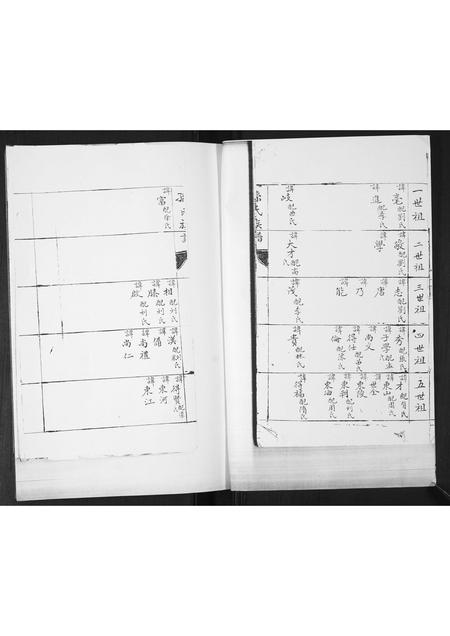 一世祖
諱毫配劉氏
諱進配李氏
諱岐配曲氏
二世祖
諱敬配劉氏
諱學
諱大才配高氏
三世祖
諱志配劉氏
諱唐
諱乃
諱能
諱茂配李氏
四世祖
諱秀配張氏
諱子學配孟氏
諱尚文
諱得仕
諱倫配宋氏
諱貴配林氏
五世祖
諱才配肖氏
諱東山配周氏
諱世全
諱東陵
諱東朝配何氏
諱東海配周氏
諱得福配隋氏
氏族譜
諱富配徐氏
諱相配刘氏
諱勝配刘氏
諱啟配刘氏
諱漢配劉氏
諱倩
諱尚禮
諱尚仁
諱得賢
諱東河
諱東江